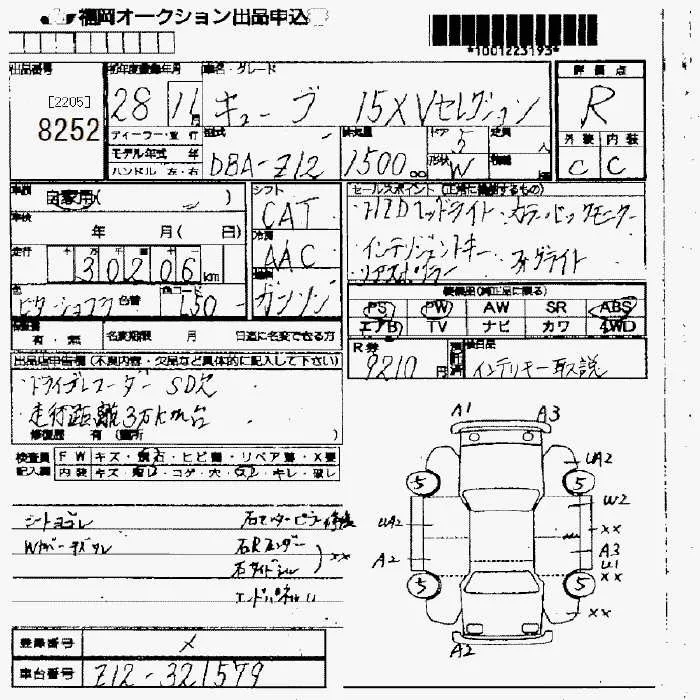 福岡オークション出品申込
*1001223193*
出品番号 初年度登録年月 車名・グレード 評価点
[2205]
8252
28 11月 キューブ 15X Vセレクション R
ディーラー・並行 型式 排気量 ドア 5 定員 人 外装 内装
モデル年式 年 DBA-Z12 1500cc 形状 W C C
ハンドル 左・右
車歴 自家用( ) シフト セールスポイント(正常に機能するもの)
車検 年 月( 日) CAT ・HIDヘッドライト・カラーバックモニター
走行 30206km 冷房 AAC インテリジェントキー フォグライト
リアスポイラー
色 ビターショコラ 色替 色コード L50 燃料 ガソリン
装備品(純正品に限る)
PS PW AW SR ABS
エアB TV ナビ カワ 4WD
有・無 名変期限 月 日迄に名変できる方
R券 9210円 インテリキー 取説
出品店申告欄(不具内容・欠品など具体的に記入して下さい)
・ドライブレコーダー SD欠
・走行距離3万km台
修復歴 有(箇所 )
検査員 FW キズ・飛石・ヒビ・リペア・X要
記入欄 内装 キズ・コゲ・穴・キレ・破レ
シートヨゴレ 右センターピラー修復
右Rフェンダー XX
右サイドシル
エンドパネルU1
A1 A3
UA2
5 5
W2
UA2 XX
A2 A3
U1
XX
5 5
XX
A2
登録番号 ×
車台番号 Z12-321579